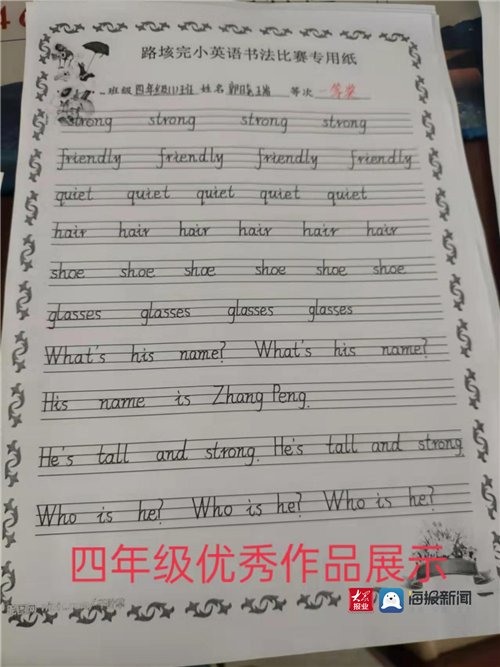 路垓完小英语书法比赛专用纸
班级 四年级(1)班 姓名 等次 一等奖
strong strong strong strong
friendly friendly friendly friendly
quiet quiet quiet quiet quiet
hair hair hair hair hair hair
shoe shoe shoe shoe shoe shoe
glasses glasses glasses glasses
What's his name? What's his name?
His name is Zhang Peng.
He's tall and strong. He's tall and strong
Who is he? Who is he? Who is he?
四年级优秀作品展示
大众报业 海报新闻